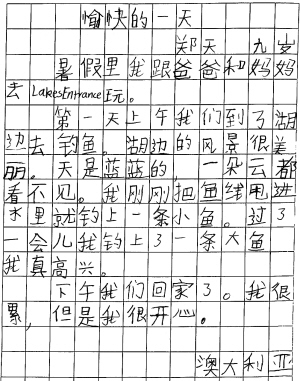 愉快的一天
郑天 九岁
暑假里我跟爸爸和妈妈
去LakesEntrance玩。
第一天上午我们到了湖
边去钓鱼。湖边的风景很美
丽。天是蓝蓝的，一朵云都
看不见。我刚刚把鱼线甩进
水里就钓上一条小鱼。过了
一会儿我钓上了一条大鱼
我真高兴。
下午我们回家了。我很
累，但是我很开心。
澳大利亚